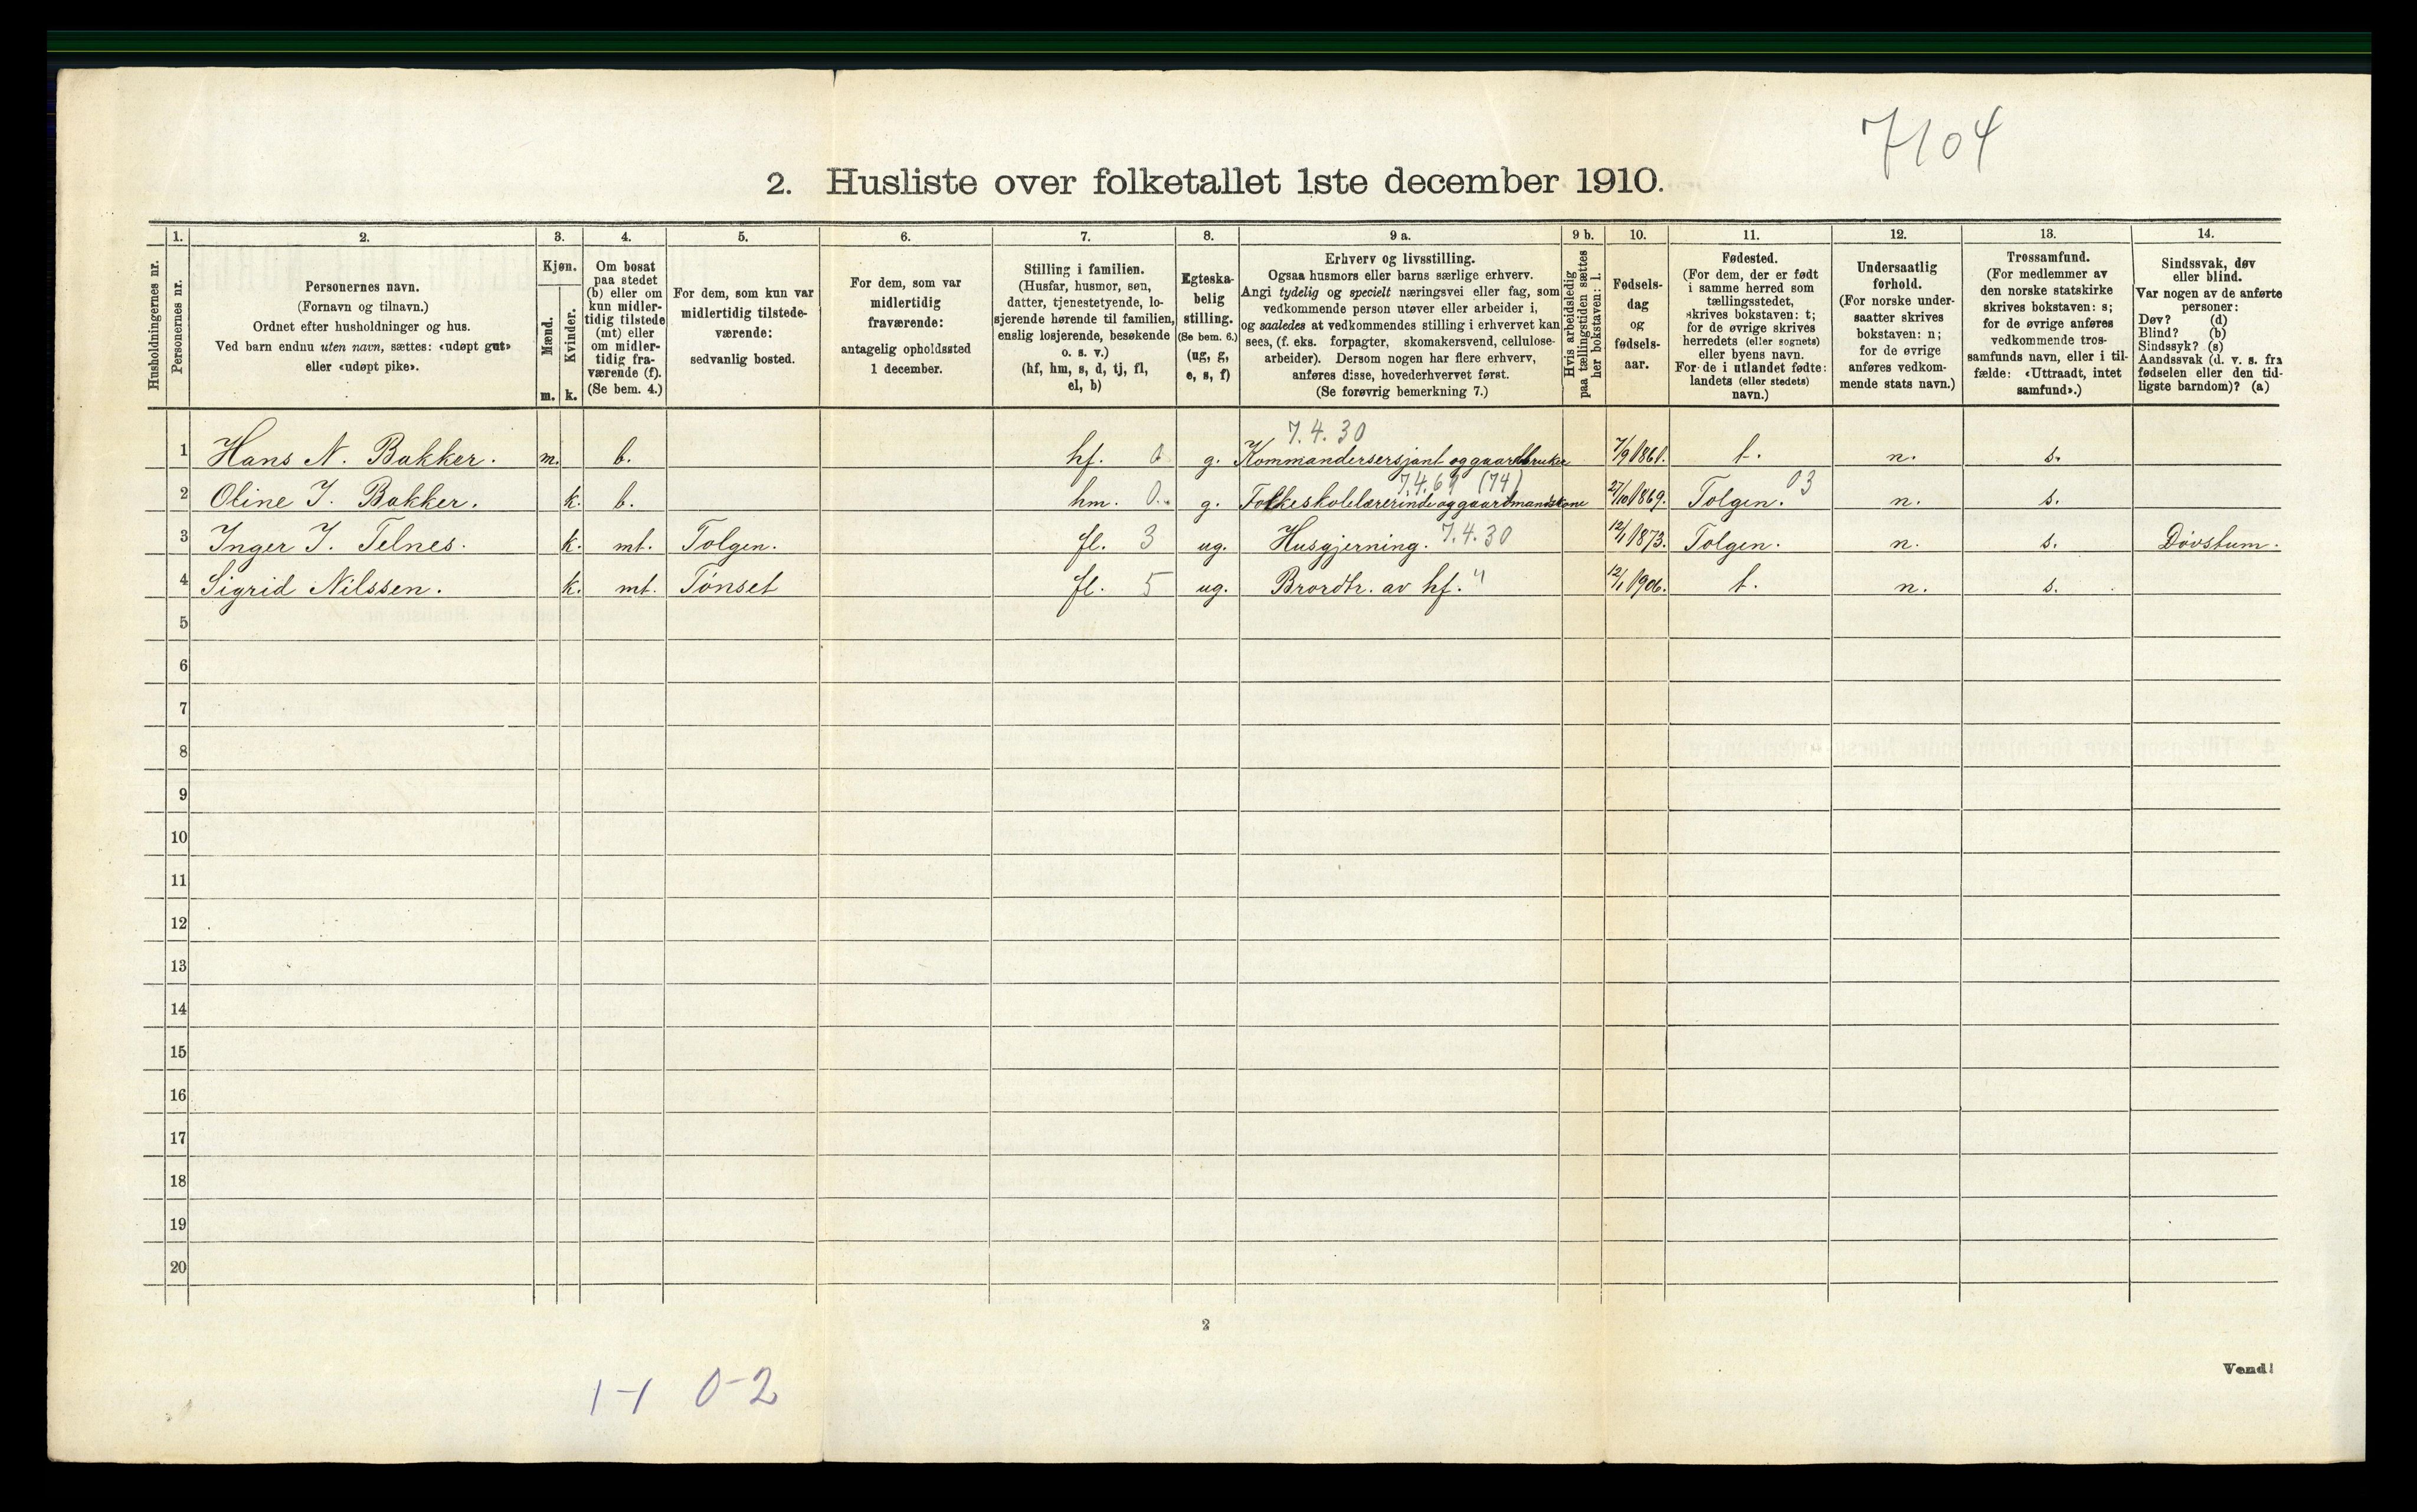 7104
2. Husliste over folketallet 1ste december 1910.
Husholdningernes nr.
1.
Personernes nr.
2.
Personernes navn.
(Fornavn og tilnavn.)
Ordnet efter husholdninger og hus.
Ved barn endnu uten navn, sættes: «udøpt gut»
eller «udøpt pike».
3.
Kjøn.
Mænd.
Kvinder.
m. k.
4.
Om bosat
paa stedet
(b) eller om
kun midler-
tidig tilstede
(mt) eller
om midler-
tidig fra-
værende (f).
(Se bem. 4.)
5.
For dem, som kun var
midlertidig tilstede-
værende:
sedvanlig bosted.
6.
For dem, som var
midlertidig
fraværende:
antagelig opholdssted
1 december.
7.
Stilling i familien.
(Husfar, husmor, søn,
datter, tjenestetyende, lo-
sjerende hørende til familien,
enslig losjerende, besøkende
o. s. v.)
(hf, hm, s, d, tj, fl,
el, b)
8.
Egteska-
belig
stilling.
(Se bem. 6.)
(ug, g,
e, s, f)
9 a.
Erhverv og livsstilling.
Ogsaa husmors eller barns særlige erhverv.
Angi tydelig og specielt næringsvei eller fag, som
vedkommende person utøver eller arbeider i,
og saaledes at vedkommendes stilling i erhvervet kan
sees, (f. eks. forpagter, skomakersvend, cellulose-
arbeider). Dersom nogen har flere erhverv,
anføres disse, hovederhvervet først.
(Se forøvrig bemerkning 7.)
9 b.
Hvis arbeidsledig
paa tællingstiden sættes
her bokstaven: l.
10.
Fødsels-
dag
og
fødsels-
aar.
11.
Fødested.
(For dem, der er født
i samme herred som
tællingsstedet,
skrives bokstaven: t;
for de øvrige skrives
herredets (eller sognets)
eller byens navn.
For de i utlandet fødte:
landets (eller stedets)
navn.)
12.
Undersaatlig
forhold.
(For norske under-
saatter skrives
bokstaven: n;
for de øvrige
anføres vedkom-
mende stats navn.)
13.
Trossamfund.
(For medlemmer av
den norske statskirke
skrives bokstaven: s;
for de øvrige anføres
vedkommende tros-
samfunds navn, eller i til-
fælde: «Uttraadt, intet
samfund».)
14.
Sindssvak, døv
eller blind.
Var nogen av de anførte
personer:
Døv? (d)
Blind? (b)
Sindssyk? (s)
Aandssvak (d. v. s. fra
fødselen eller den tid-
ligste barndom)? (a)
7.4.30
1 Hans N. Bakker. m. b. hf. 0 g. Kommandersersjant og gaardbruker 7/9 1861. t. n. s.
7.4.69 (74) 03
2 Oline J. Bakker. k. b. hm. 0. g. Folkeskolelærerinde og gaardmandskone 27/10 1869. Tolgen. n. s.
3 Inger J. Telnes. k. mt. Tolgen. fl. 3 ug. Husgjerning. 7.4.30 12/1 1873. Tolgen. n. s. Døvstum.
4 Sigrid Nilssen. k. mt. Tønset fl. 5 ug. Brordtr. av hf. " 12/1 1906. t. n. s.
5
6
7
8
9
10
11
12
13
14
15
16
17
18
19
20
2
Vend!
1-1 0-2